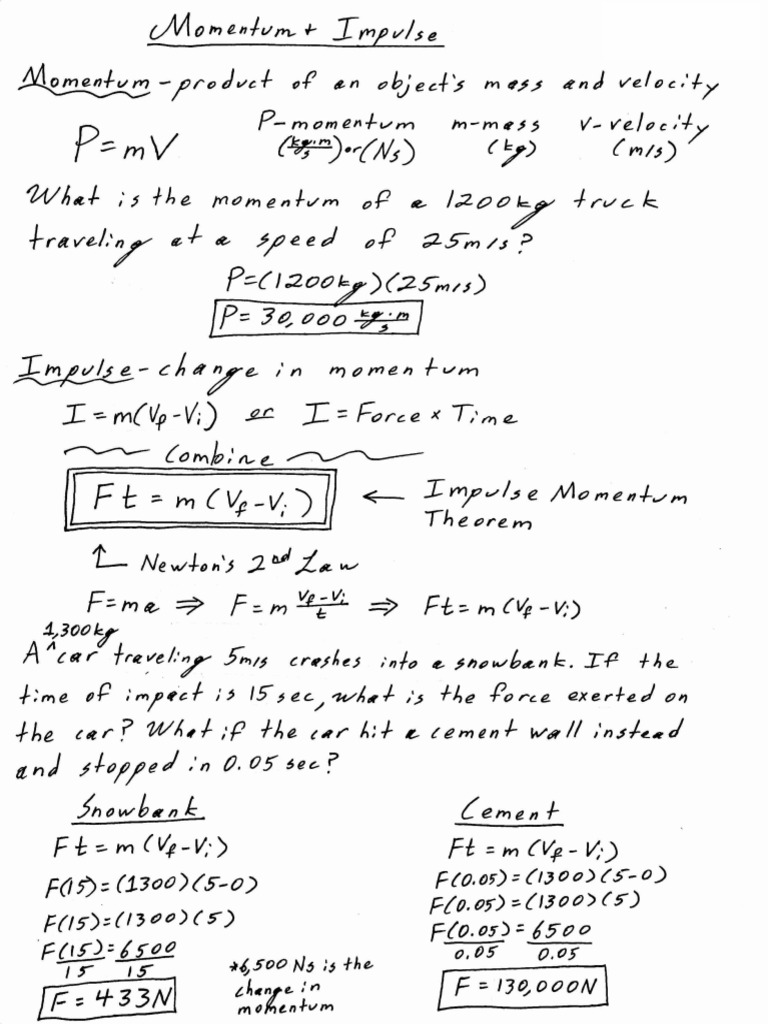 Momentum + Impulse
Momentum - product of an object's mass and velocity
P=mV P-momentum m-mass v-velocity
(kg·m/s) or (Ns) (kg) (m/s)
What is the momentum of a 1200kg truck
traveling at a speed of 25m/s?
P=(1200kg)(25m/s)
P= 30,000 kg·m/s
Impulse - change in momentum
I = m(Vf-Vi) or I = Force × Time
Combine
Ft = m (Vf-Vi) ← Impulse Momentum
Theorem
Newton's 2nd Law
F=ma ⇒ F=m Vf-Vi/t ⇒ Ft=m(Vf-Vi)
1,300kg
A ^ car traveling 5m/s crashes into a snowbank. If the
time of impact is 15 sec, what is the force exerted on
the car? What if the car hit a cement wall instead
and stopped in 0.05 sec?
Snowbank
Ft = m (Vf-Vi)
F(15)=(1300)(5-0)
F(15)=(1300)(5)
F(15)=6500
15 15
F = 433N
*6,500 Ns is the
change in
momentum
Cement
Ft = m (Vf-Vi)
F(0.05)=(1300)(5-0)
F(0.05)=(1300)(5)
F(0.05)=6500
0.05 0.05
F = 130,000N